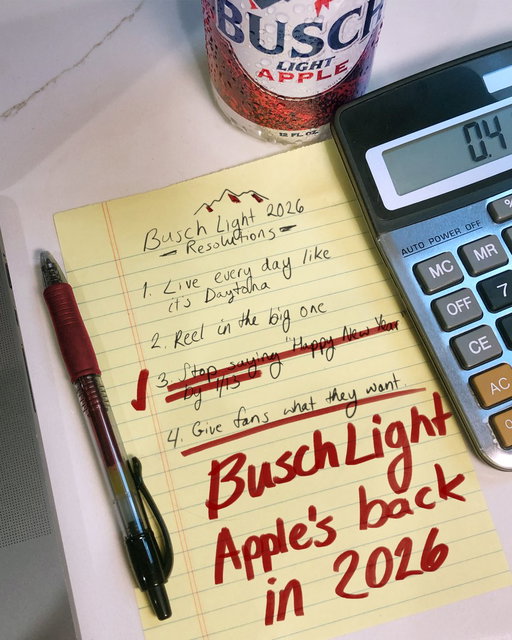 BUSCH
LIGHT
APPLE
12 FL. OZ.
0.4
AUTO POWER OFF
%
MC
MR
OFF
7
CE
AC
0
Busch Light 2026
- Resolutions -
1. Live every day like
it's Daytona
2. Reel in the big one
3. Stop saying "Happy New Year"
by 1/15
4. Give fans what they want.
Busch Light
Apple's back
in 2026